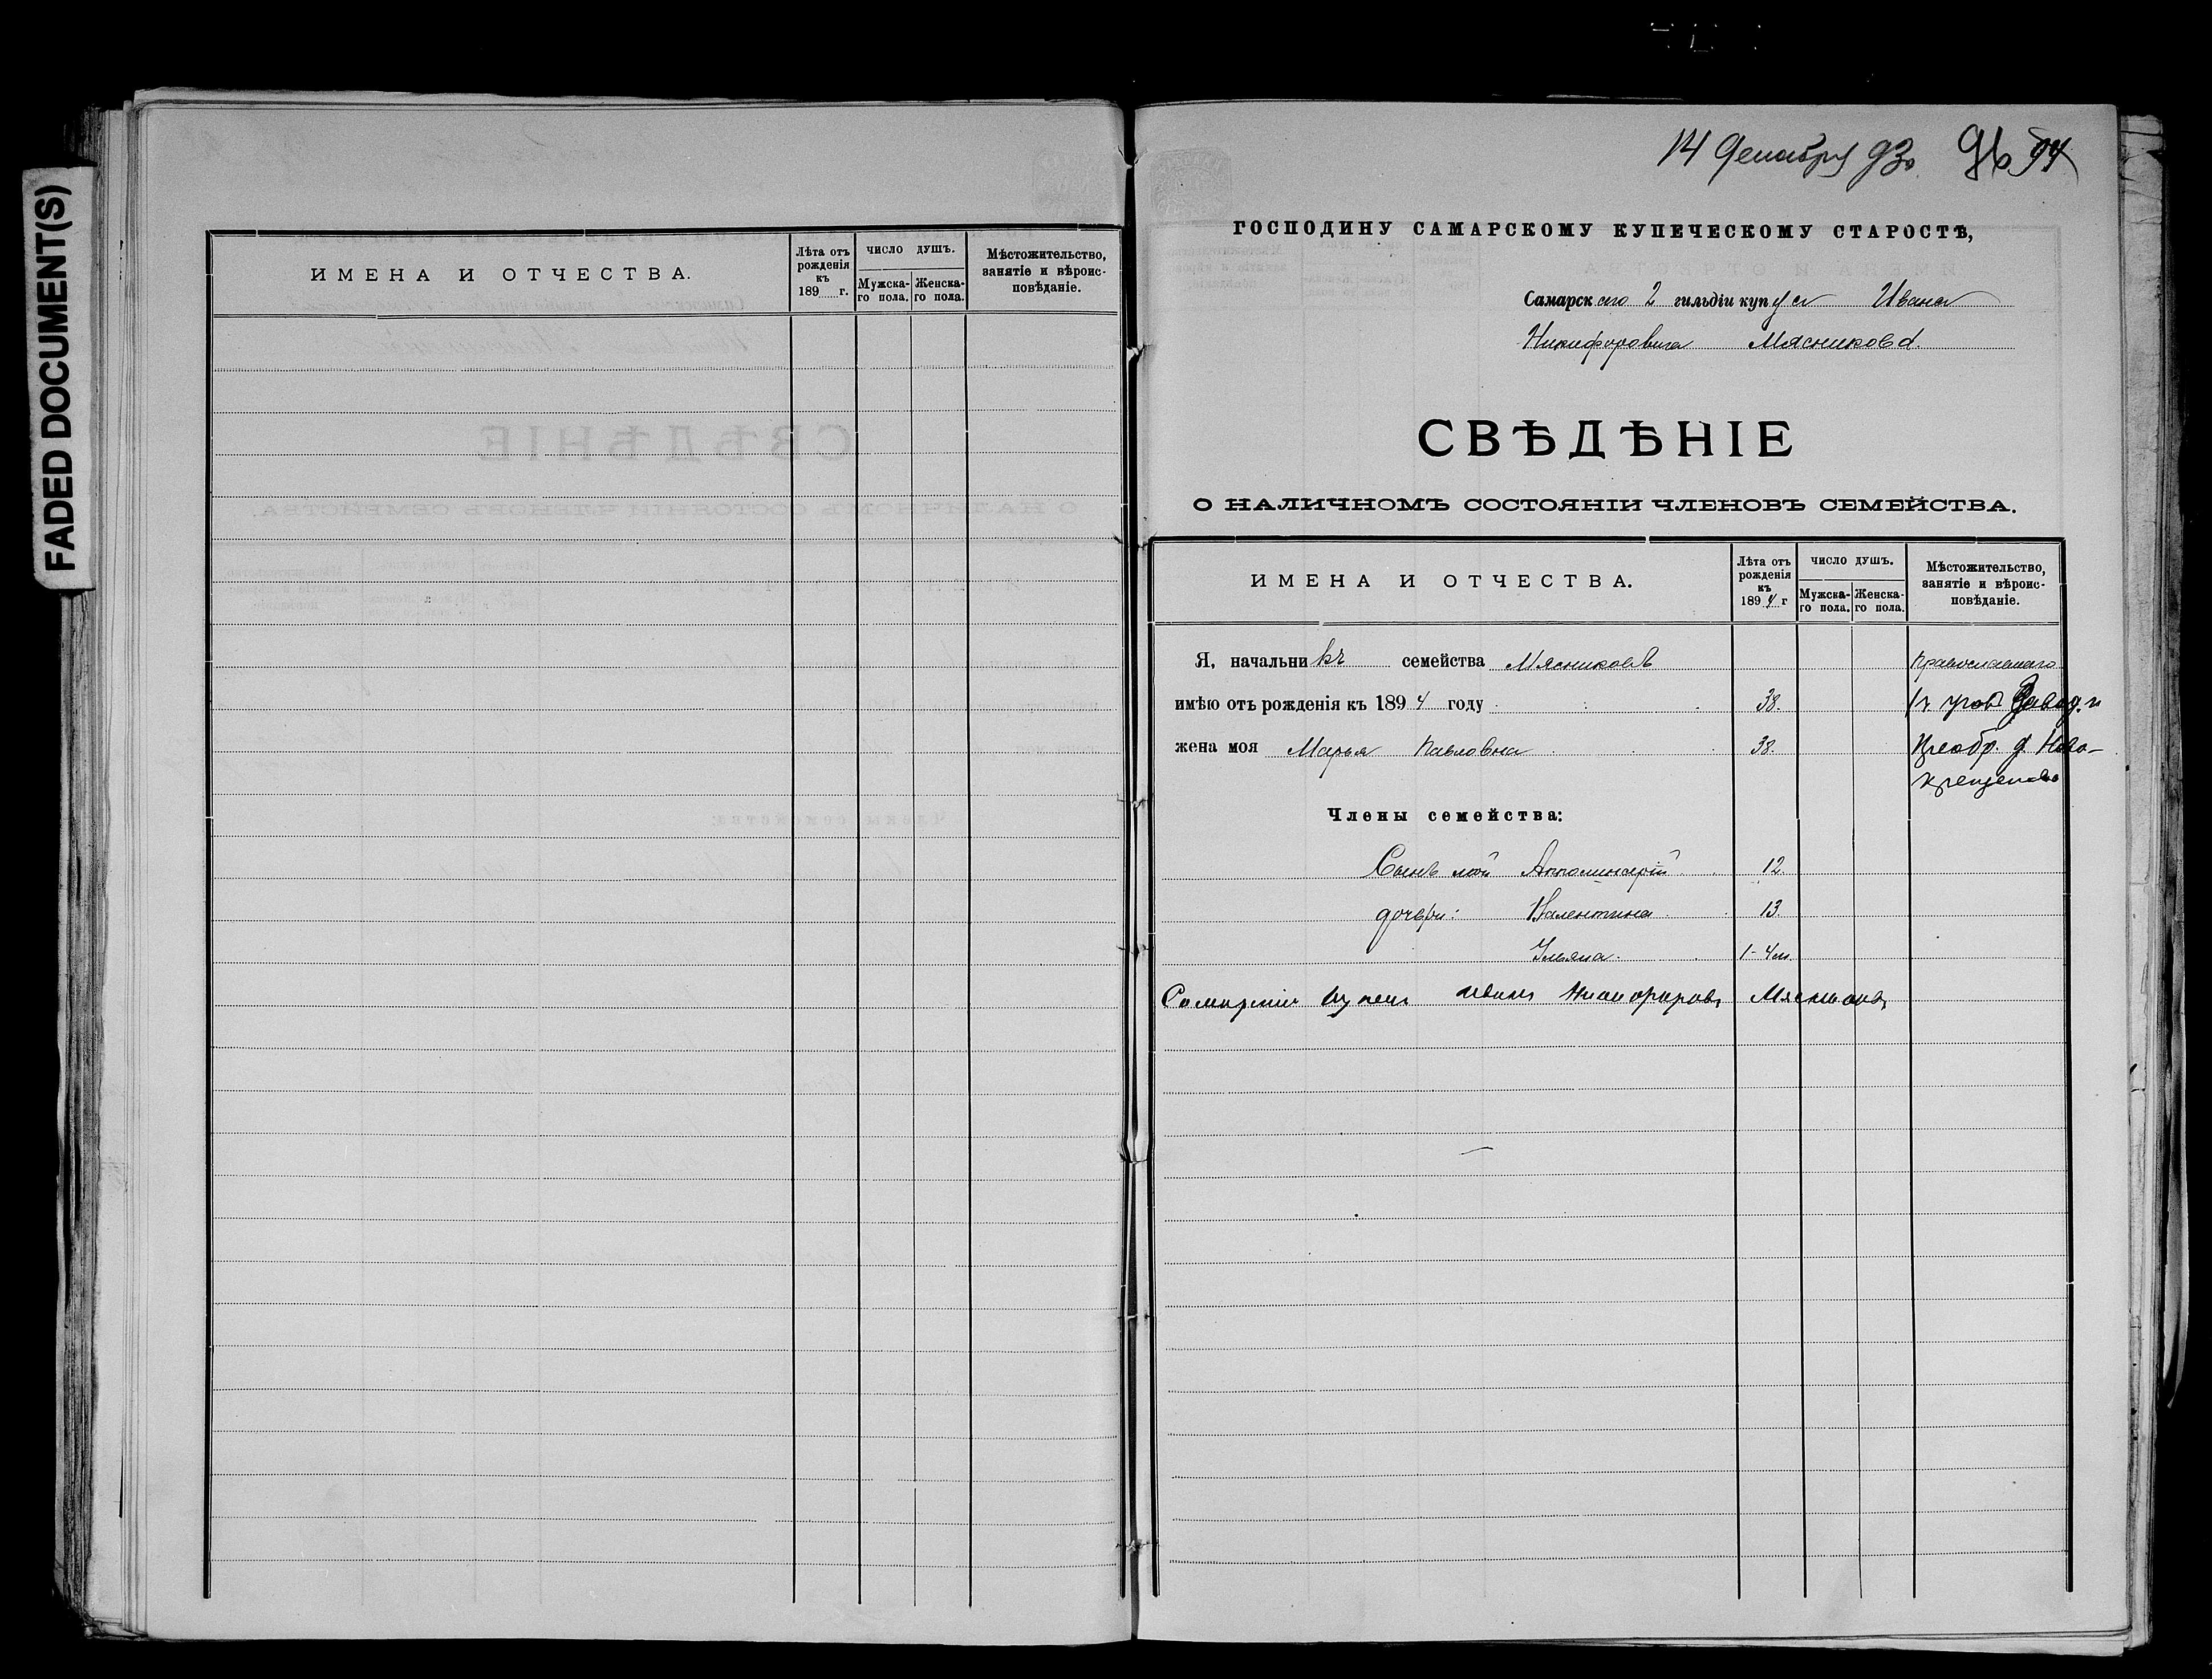 FADED DOCUMENT(S)
ИМЕНА И ОТЧЕСТВА.
Лѣта отъ рожденія къ 189 г.
ЧИСЛО ДУШЪ.
Мужскаго пола.
Женскаго пола.
Мѣстожительство, занятіе и вѣроисповѣданіе.
14 Декабря 93 г. 96 94
ГОСПОДИНУ САМАРСКОМУ КУПЕЧЕСКОМУ СТАРОСТѢ,
Самарскаго 2 гильдіи купца Ивана
Никифоровича Мясникова
СВѢДѢНІЕ
О НАЛИЧНОМЪ СОСТОЯНІИ ЧЛЕНОВЪ СЕМЕЙСТВА.
ИМЕНА И ОТЧЕСТВА.
Лѣта отъ рожденія къ 1894 г
ЧИСЛО ДУШЪ.
Мужска-го пола.
Женска-го пола.
Мѣстожительство, занятіе и вѣроис-повѣданіе.
Я, начальникъ семейства Мясниковъ Православнаго
имѣю отъ рожденія къ 1894 году 38.
жена моя Марья Павловна 38. Преобр. д. Ново-
Члены семейства:
Сынъ мой Апполинарій 12.
дочери: Валентина 13.
1 - 4 м.
Самарскій купец иванъ Никифоровъ Мясников